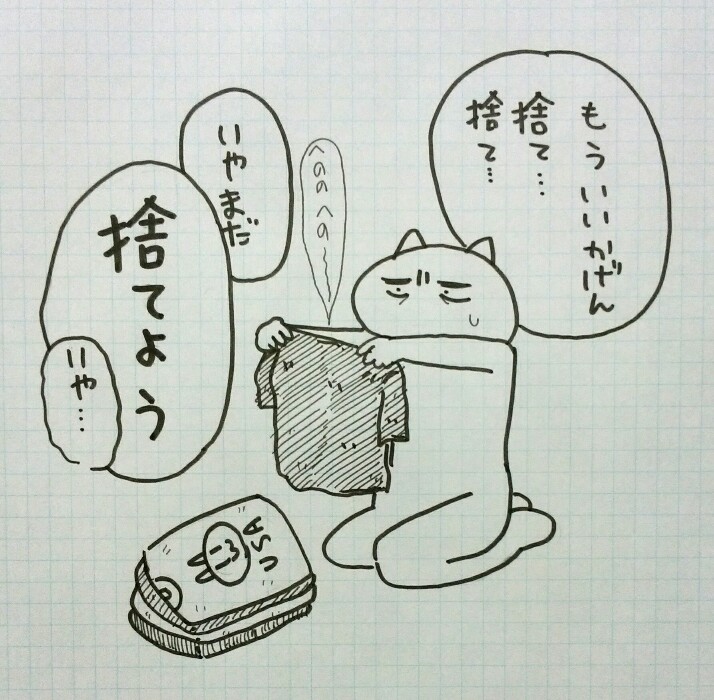 もういいかげん
捨て…
捨て…
へのへの〜
いやまだ
捨てよう
いや…
USA